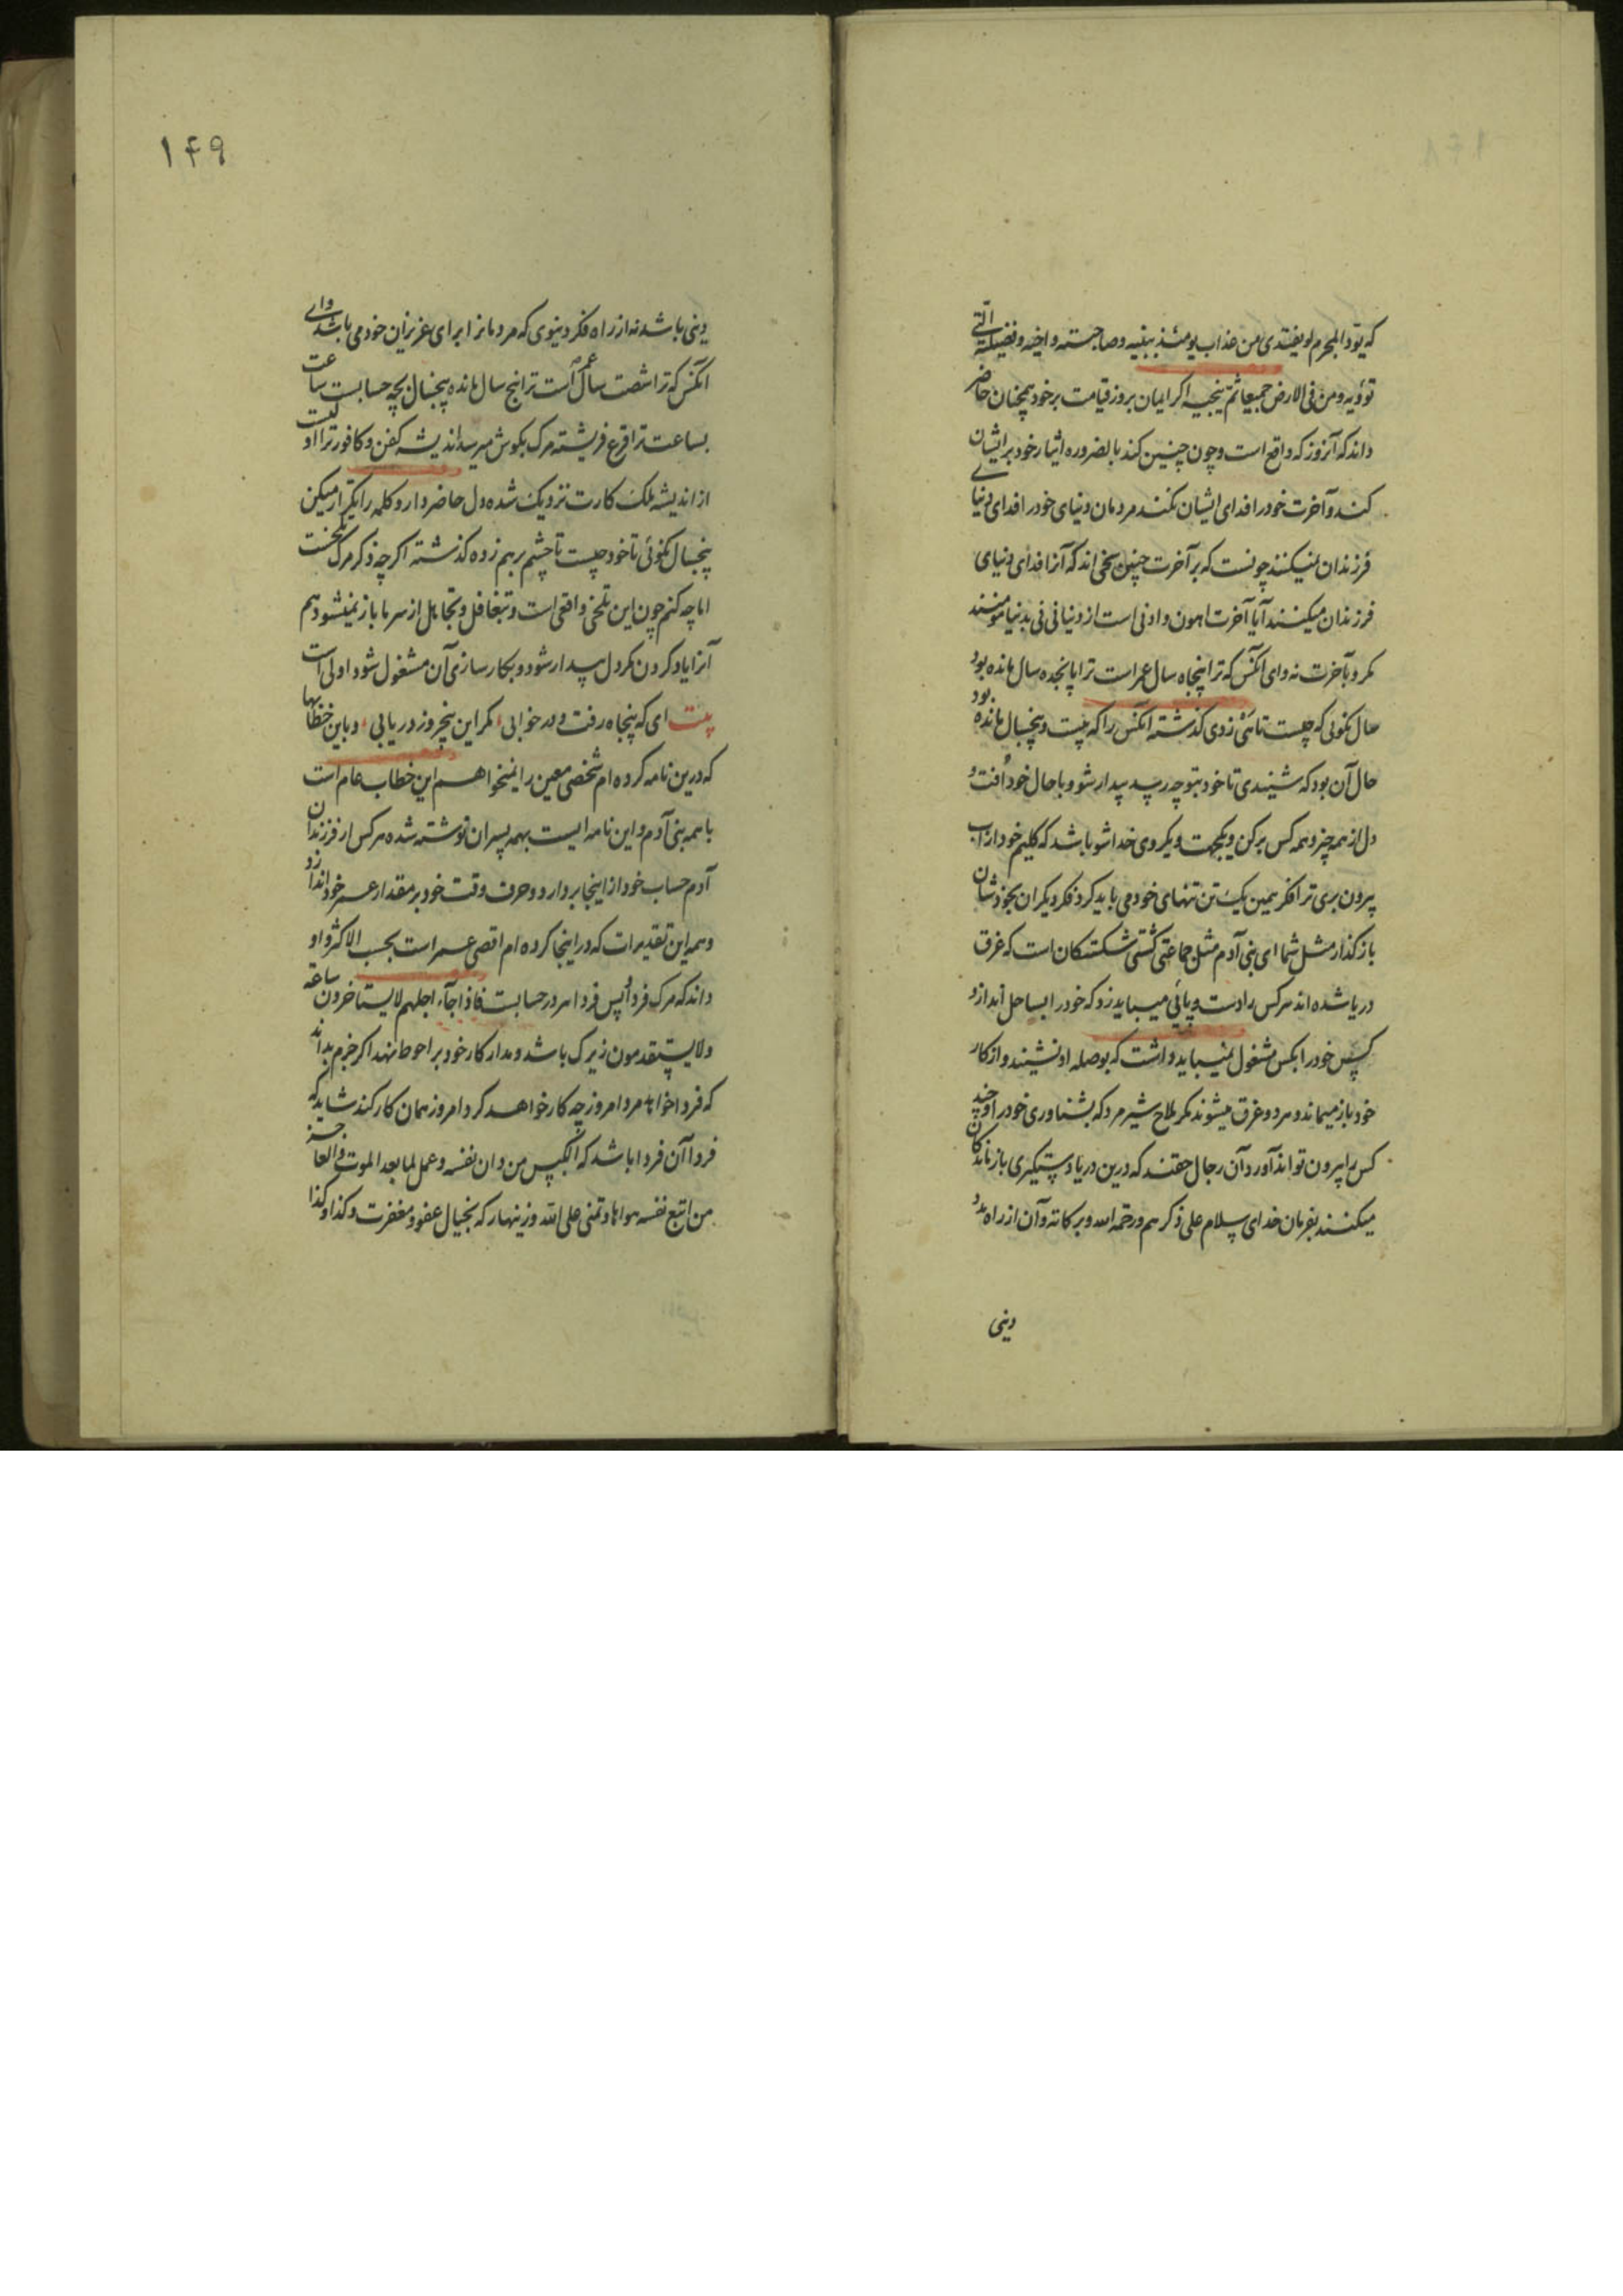 که یود المجرم لو یفتدی من عذاب یومئذ ببنیه وصاحبته واخیه وفصیلته التی
تؤویه ومن فی الارض جمیعا ثم ینجیه اکر ایمان بروز قیامت بر خود همچنان حاضر
داند که آنروز که واقع است وچون چنین کند بالضروره ایثار خود بر ایشان
کند وآخرت خود را فدای ایشان نکند مردمان دنیای خود را فدای دنیای
فرزندان نمیکنند چونست که بر آخرت چنین سخی اند که آنرا فدای دنیای
فرزندان میکنند آیا آخرت اهون وادنی است از دنیا نی نی بدنیا مومنند
مکر وبآخرت نه وای آنکس که ترا پنجاه سال عمر است ترا پانجده سال مانده بود
حال نکوئی که چیست تا زدی کذشته آنکس را که بیست وپنجسال مانده بود
حال آن بود که شنیدی تا خود بتو چه رسد بیدار شو وبا حال خود افت و
دل از همه چیز وهمه کس برکن ویکجهت ویکروی خدا شو باشد که کلیم خود از آب
بیرون بری ترا فکر همین یک تن تنهای خود می باید کرد فکر دیکران بخودشان
باز کذار مثل شما ای بنی آدم مثل جماعتی کشتی شکستکان است که غرق
دریا شده اند هرکس را دست وپائی میباید زد که خود را بساحل اندازد
پس خود را بکس مشغول نمیباید داشت که بوصله او نشیند واز کار
خود باز میماند وهر دو غرق میشوند مکر ملاح شیرمرد که بشناوری خود را وچند
کس را بیرون تواند آورد وآن رجال حقند که درین دریا دستکیری بازماندکان
میکنند بفرمان خدای سلام علی ذکرهم ورحمة الله وبرکاته وآن از راه درد
دینی
۱۴۹
دینی باشد نه از راه فکر دنیوی که مردمانرا برای عزیزان خود می باشد وای
آنکس که ترا شصت سال عمر است ترا پنج سال مانده پنجسال بچه حسابست ساعت
بساعت ترا قرع فرشته مرک بکوش میرسد اندیشه کفن وکافور ترا اولیست
از اندیشه ملک کارت نزدیک شده دل حاضر دار وکلمه را تکرار میکن
پنجسال نکوئی تا خود چیست تا چشم برهم زده کذشته اکرچه ذکر مرک تلخست
اما چه کنم چون این تلخی واقعی است وبتغافل وتجاهل از سر ما باز نمیشود هم
آنرا یاد کردن مکر دل بیدار شود وبکارسازی آن مشغول شود اولی است
بیت ای که پنجاه رفت ودر خوابی، مکر این پنجروز دریابی، وباین خطابها
که درین نامه کرده ام شخصی معین را نمیخواهم این خطاب عام است
با همه بنی آدم واین نامه ایست بهمه پسران نوشته شده هرکس از فرزندان
آدم حساب خود از اینجا بردارد وحرف وقت خود بر مقدار عمر خود اندازد
وهمه این تقدیرات که در اینجا کرده ام اقصی عمر است بحسب الاکثر واو
داند که مرک فردا پس فردا در حسابست فاذا جاء اجلهم لا یستاخرون ساعة
ولا یستقدمون زیرک باشد ومدار کار خود بر احوط نهد اکر جزم بداند
که فردا خواهد مرد امروز چه کار خواهد کرد امروز همان کار کند شاید که
فردا آن فردا باشد که الکیس من دان نفسه وعمل لما بعد الموت والعاجز
من اتبع نفسه هواها وتمنی علی الله وزینهار که بخیال عفو ومغفرت وکذا وکذا